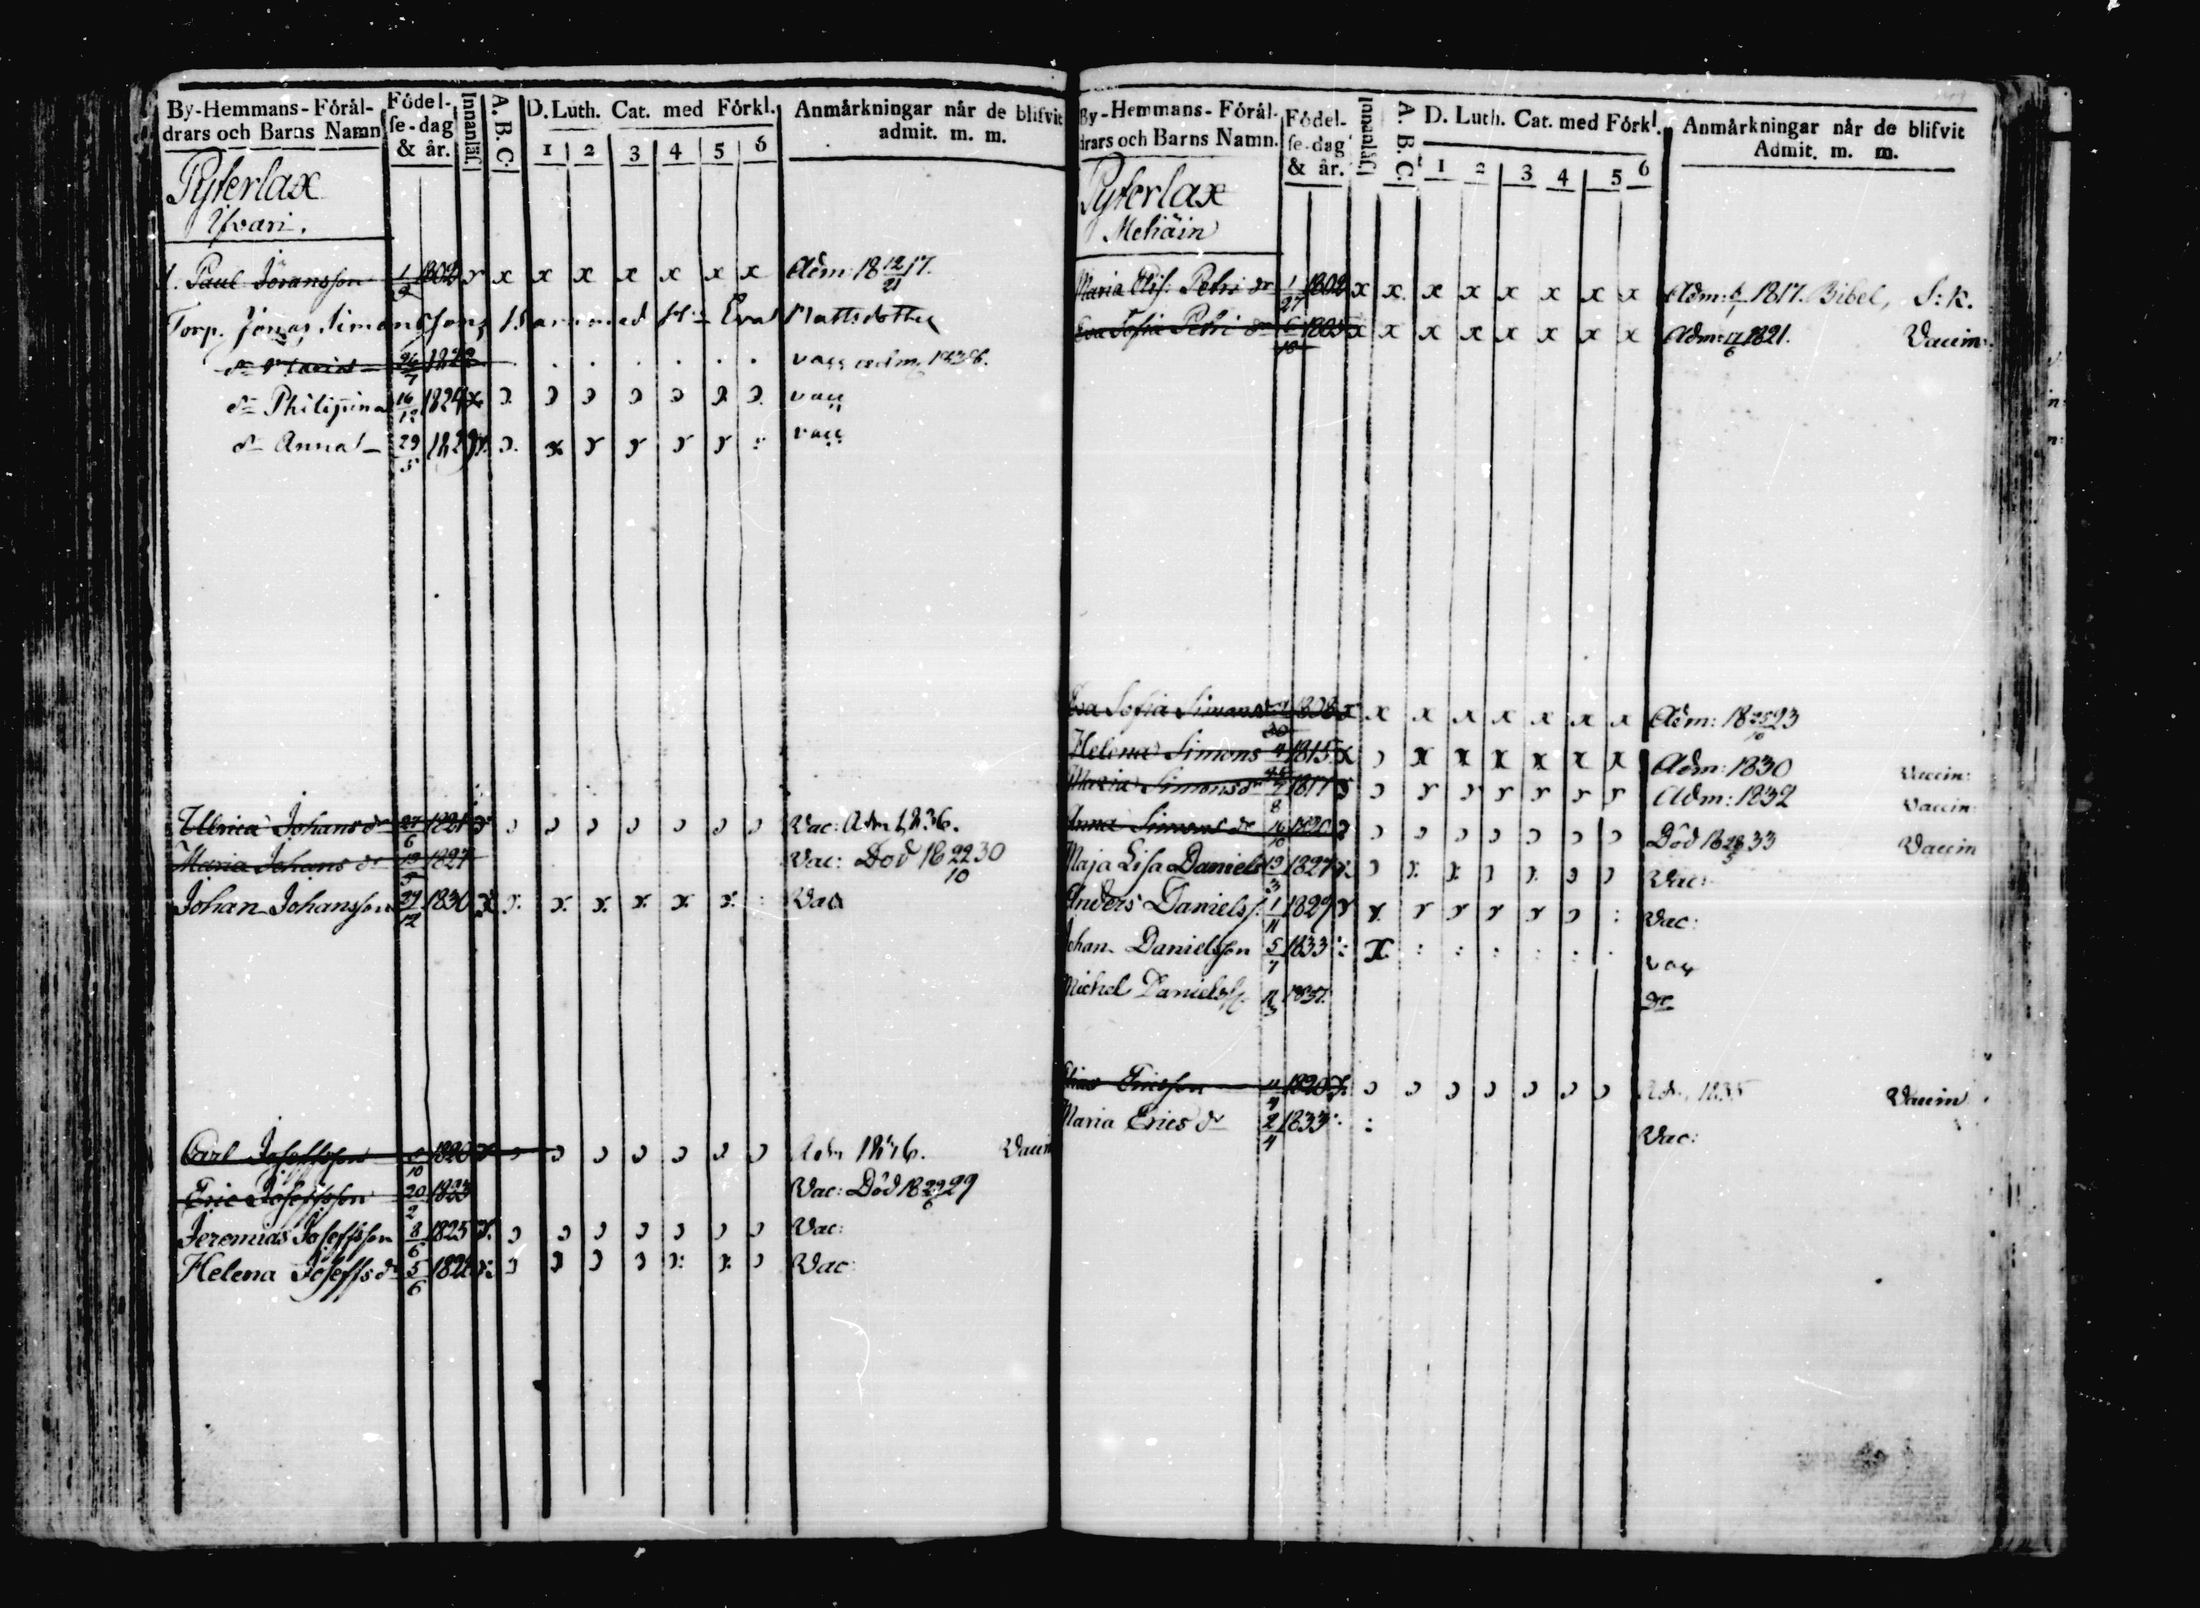 By-Hemmans-Förål-
drars och Barns Namn
Födel-
se-dag
& år.
Innanläs.
A. B. C.
D. Luth. Cat. med Förkl.
1 2 3 4 5 6
Anmärkningar når de blifvit
admit. m. m.
Pyterlax
Yvari.
Paul Jöransson 1/9 1802 x x x x x x x Adm: 18 12/21 17.
Torp. Jonas Simonsson, med H: Eva Mattsdotter
vacc adm 1836.
dr Philipina 16/12 1824 vacc
dr Anna 29/5 vacc
Ulrica Johans dr 27/6 1821 Vac: Adm 1836.
Maria Johans dr 19/5 1827 Vac: Död 18 22/10 30
Johan Johansson 29/12 1830 x x x x x x Vac
Carl Josefsson 10 1820 Adm 1836. Vaccin
Eric Josefsson 20/2 1823 Vac: Död 18 29/6 29
Jeremias Josefsson 8/6 1825 Vac:
Helena Josefs dr 5/6 Vac:
By-Hemmans-Förål-
drars och Barns Namn.
Födel-
se-dag
& år.
Innanläs.
A. B. C.
D. Luth. Cat. med Förkl.
1 2 3 4 5 6
Anmärkningar når de blifvit
Admit. m. m.
Pyterlax
Mehäin
Maria Elis: Petri dr 1/27 1802 x x x x x x x x Adm: 1817. Bibel, S: k.
Eva Sofia Petri dr 6/10 1805 x x x x x x x x Adm: 17/6 1821. Vaccin:
Eva Sofia Simons dr 1808 x x x x x x x x Adm: 18 25/10 23
Helena Simons 1815 x x x x x x x Adm: 1830 Vaccin:
Maria Simons dr 7/8 1817 Adm: 1832 Vaccin:
Anna Simons dr 16/10 1820 Död 18 28/5 33 Vaccin
Maja Lisa Daniels 19/3 1827 Vac:
Anders Daniels. 1/11 1829 Vac:
Johan Danielsson 5/7 1833 vac
Michel Daniels 11/3 1837. do
Ericsson 11/4 1820 Adm 1835 Vaccin
Maria Erics dr 2/4 1833 Vac: